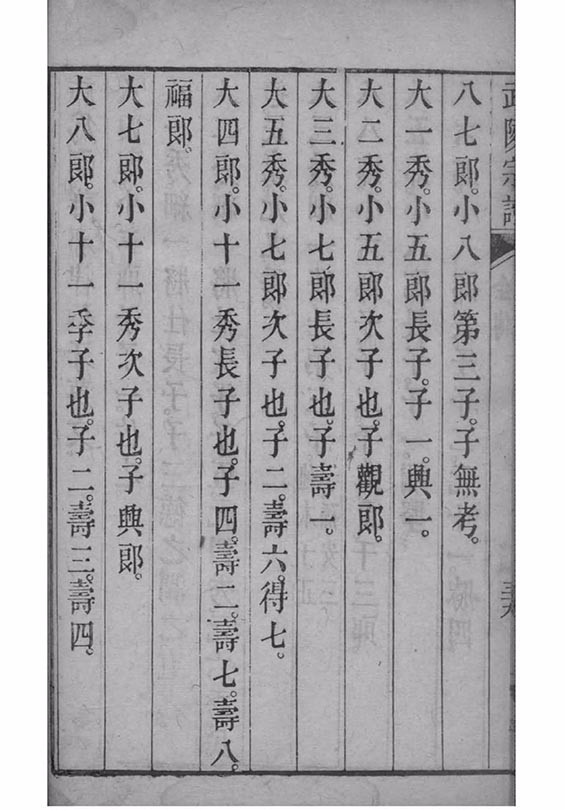 武陵宗譜
八七郎。小八郎第三子。子無考。
大一秀。小五郎長子。子一。興一。
大二秀。小五郎次子也。子觀郎。
大三秀。小七郎長子也。子壽一。
大五秀。小七郎次子也。子二。壽六。得七。
大四郎。小十一秀長子也。子四。壽二。壽七。壽八。
福郎。
大七郎。小十一秀次子也。子興郎。
大八郎。小十一季子也。子二。壽三。壽四。